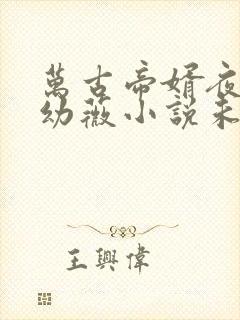 萬古帝婿夜
幼薇小說未
王興偉